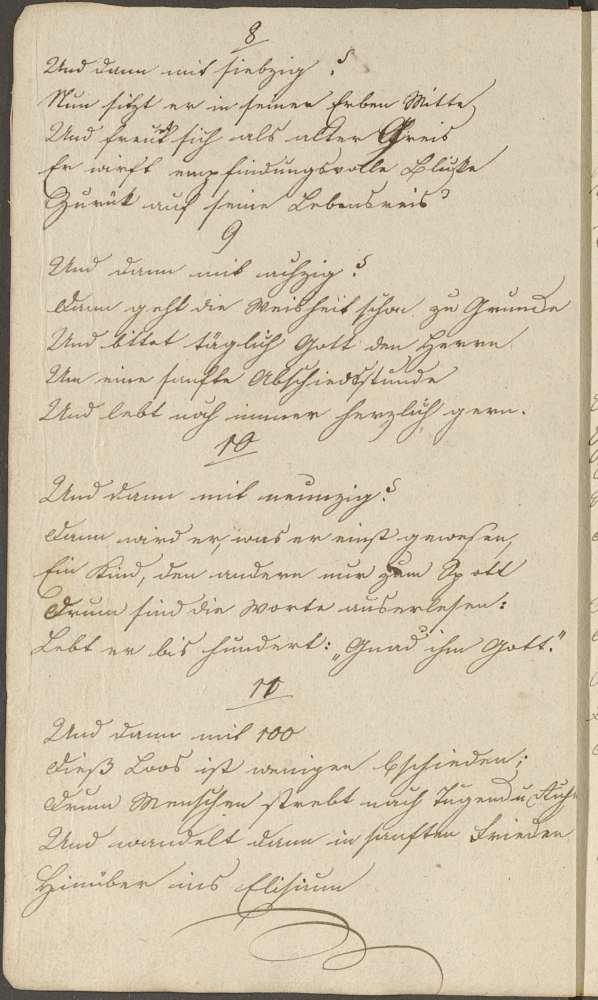 8
Und dann mit siebzig?
Nun sitzt er in seiner Erben Mitte
Und freut sich als alter Greis
Er wirft empfindungsvolle Blicke
Zurük auf seine Lebensreis
9
Und dann mit achzig?
Dann geht die Weisheit schon zu Grunde
Und bittet täglich Gott den Herrn
Um eine sanfte Abschiedsstunde
Und lebt noch immer herzlich gern.
10
Und dann mit neunzig?
Dann wird er, was er einst gewesen,
Ein Kind, den andern nur zum Spott
Drum sind die Worte auserlesen:
Lebt er bis hundert: „Gnad ihm Gott."
11
Und dann mit 100
Dieß Loos ist wenigen bschieden;
Drum Menschen strebt nach Tugend u
Und wandelt dann in sanften Frieden
Hinüber ins Elisium